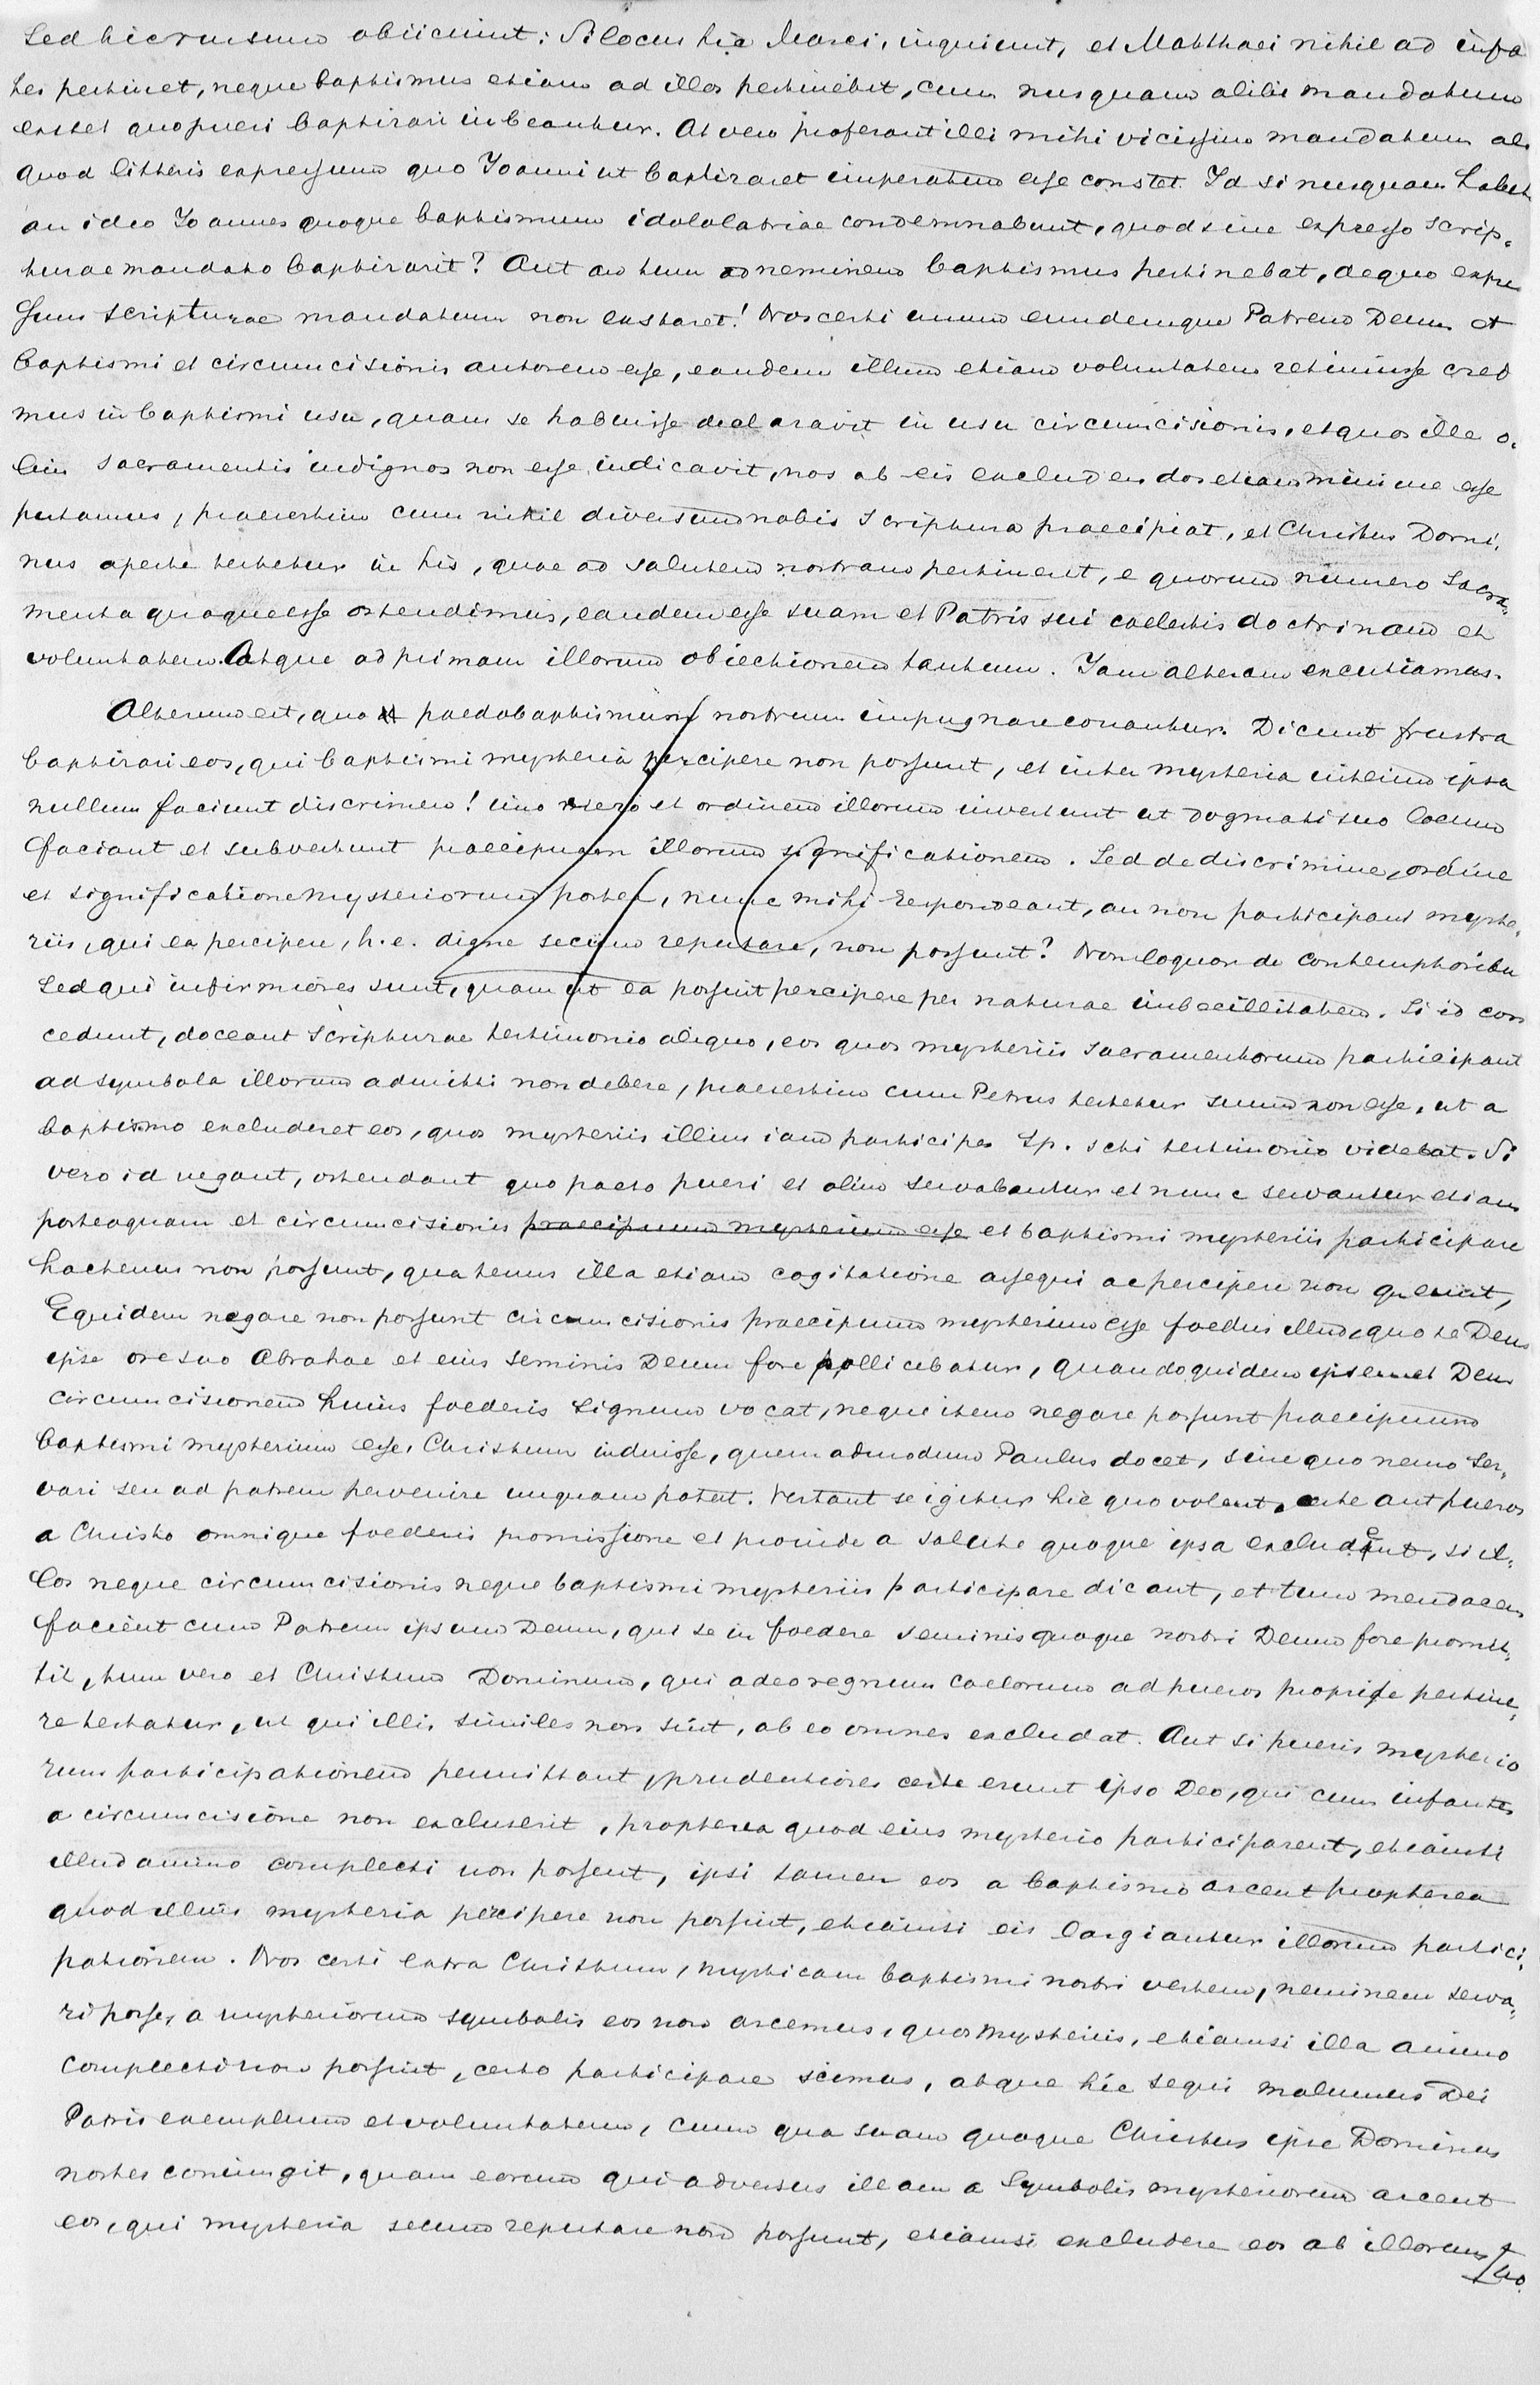 Sed hic rursum obiiciunt: Si locus hic Marci, inquiunt, et Matthaei nihil ad infan
tes pertinet, neque baptismus etiam ad illos pertinebit, cum nusquam alibi mandatum
extet quo pueri baptizari iubeantur. At vero proferant illi mihi vicissim mandatum ali
quod litteris expressum quo Joanni ut baptizaret imperatum esse constet. Id si nusquam habetur
an ideo Joannes quoque baptismum idololatriae condemnabunt, quod sine expresso scrip,
turae mandato baptizarit? Aut an tum ad neminem baptismus pertinebat, de quo expres
sum scripturae mandatum non exstaret! Nos certi unum eundemque Patrem Deum et
baptismi et circumcisionis autorem esse, eandem illum etiam voluntatem retinuisse credi
mus in baptismi usu, quam se habuisse declaravit in usu circumcisionis, et quos ille o,
lim sacramentis indignos non esse iudicavit, nos ab eis excludendos etiam minime esse
putamus, praesertim cum nihil diversum nobis scriptura praecipiat, et Christus Domi,
nus aperte testetur in his, quae ad salutem nostram pertinent, e quorum numero Sacra,
menta quoque esse ostendimus, eandem esse suam et Patris sui caelestis doctrinam et
voluntatem. Atque ad primam illorum obiectionem tantum. Jam alteram excutiamus.
Alterum est, quo paedobaptismum nostrum impugnare conantur. Dicunt frustra
baptizari eos, qui baptismi mysteria percipere non possunt, et inter mysteria interim ipsa
nullum faciunt discrimen! imo vero et ordinem illorum invertunt ut dogmati suo locum
faciant et subvertunt praecipuam illorum significationem. Sed de discrimine, ordine
et significatione mysteriorum postea, nunc mihi respondeant, an non participant myste,
riis, qui ea percipere, h.e. digne secum reputare, non possunt? Non loquor de contemptoribus
sed qui infirmiores sunt, quam ut ea possint percipere per naturae imbecillitatem. Si id con
cedunt, doceant scripturae testimonio aliquo, eos quos mysteriis sacramentorum participant
ad symbola illorum admitti non debere, praesertim cum Petrus testetur suum non esse, ut a
baptismo excluderet eos, quos mysteriis illius iam participes Sp. scti testimonio videbat. Si
vero id negant, ostendant quo pacto pueri et olim servabantur et nunc servantur etiam
posteaquam et circumcisionis praecipuum mysterium esse et baptismi mysteriis participare
hactenus non possunt, quatenus illa etiam cogitatione assequi ac percipere non queunt,
Equidem negare non possunt circumcisionis praecipuum mysterium esse foedus illud, quo se Deus
ipse ore suo Abrahae et eius seminis Deum fore pollicebatur, quandoquidem ipsemet Deus
circumcisionem huius foederis signum vocat, neque item negare possunt praecipuum
baptismi mysterium esse, Christum induisse, quemadmodum Paulus docet, sine quo nemo ser,
vari seu ad patrem pervenire unquam potest. Vertant se igitur hic quo volent, certe aut pueros
a Christo omnique foederis promissione et proinde a salute quoque ipsa excludent, si il,
los neque circumcisionis neque baptismi mysteriis participare dicant, et tum mendacem
facient cum Patrem ipsum Deum, qui se in foedere seminis quoque nostri Deum fore promit,
tit, tum vero et Christum Dominum, qui adeo regnum caelorum ad pueros proprie pertine,
re testatur, ut qui illis similes non sint, ab eo omnes excludat. Aut si pueris mysterio
rum participationem permittant, prudentiores certe erunt ipso Deo, qui cum infantes
a circumcisione non excluserit, propterea quod eius mysterio participarent, etiamsi
illud animo complecti non possent, ipsi tamen eos a baptismo arcent propterea
quod illius mysteria percipere non possint, etiamsi eis largiantur illorum partici,
pationem. Nos certi extra Christum, mysticam baptismi nostri vestem, neminem serva,
ri posse, a mysteriorum symbolis eos non arcemus, quos mysteriis, etiamsi illa animo
complecti non possint, certo participare scimus, atque hic sequi malumus Dei
Patris exemplum et voluntatem, cum qua suam quoque Christus ipse Dominus
noster coniungit, quam eorum qui adversus illam a symbolis mysteriorum arcent
eos, qui mysteria secum reputare non possunt, etiamsi excludere eos ab illorum